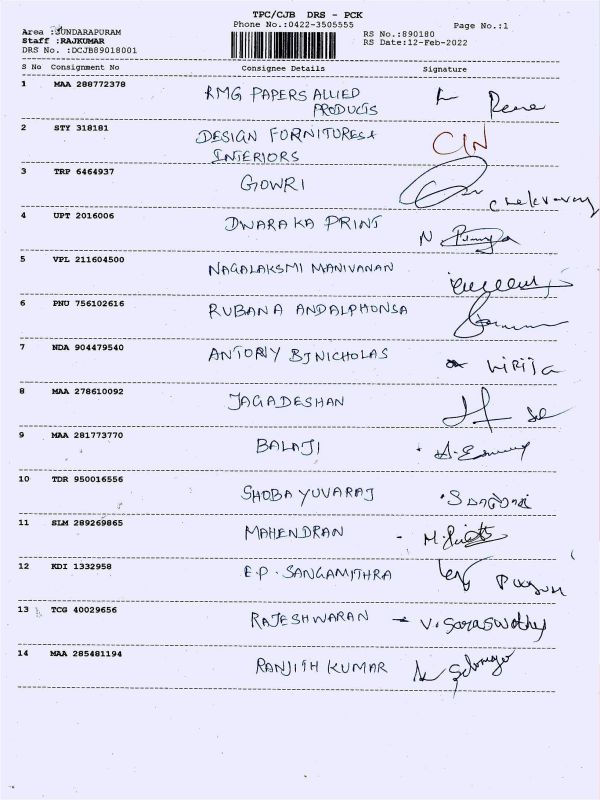 TPC/CJB DRS - PCK
Phone No.:0422-3505555
Page No.:1
Area :SUNDARAPURAM
Staff :RAJKUMAR
DRS No. :DCJB89018001
RS No.:890180
RS Date:12-Feb-2022
S No Consignment No Consignee Details Signature
1 MAA 288772378 RMG PAPERS ALLIED
PRODUCTS
2 STY 318181 DESIGN FORNITURES & CIN
INTERIORS
3 TRP 6464937 GOWRI
4 UPT 2016006 DWARAKA PRINT N
5 VPL 211604500 NAGALAKSMI MANIVANAN
6 PNU 756102616 RUBANA ANDALPHONSA
7 NDA 904479540 ANTONY BJNICHOLAS
8 MAA 278610092 JAGADESHAN
9 MAA 281773770 BALAJI
10 TDR 950016556 SHOBA YUVARAJ
11 SLM 289269865 MAHENDRAN
12 KDI 1332958 E.P. SANGAMITHRA
13 TCG 40029656 RAJESHWARAN - V. Saraswathy
14 MAA 285481194 RANJITH KUMAR